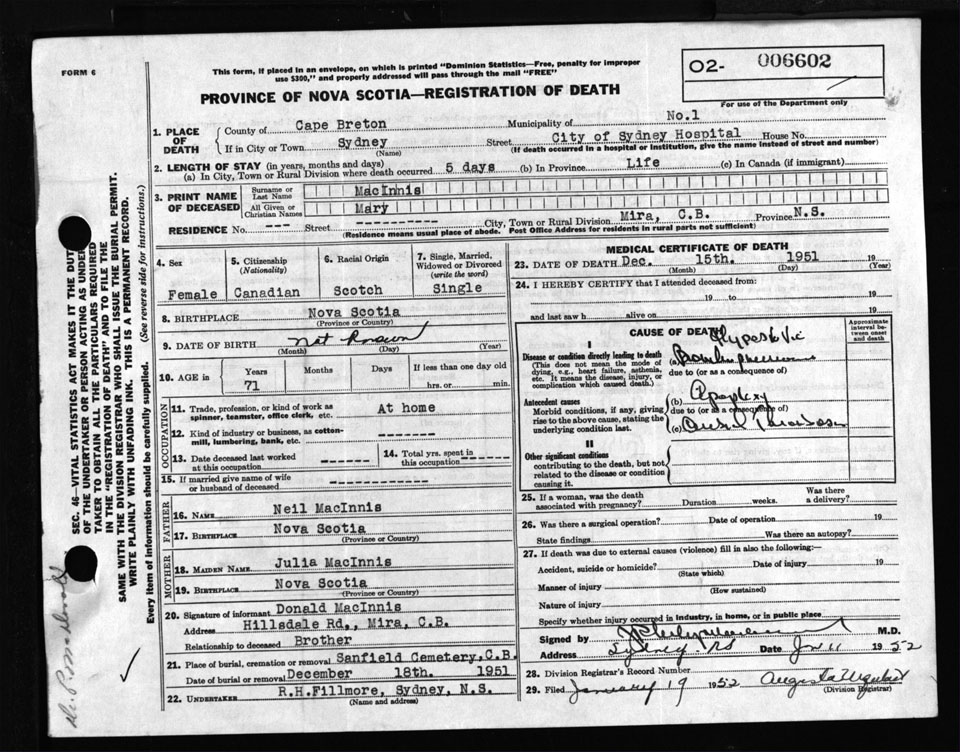 FORM 6
This form, if placed in an envelope, on which is printed "Dominion Statistics—Free, penalty for improper
use $300," and properly addressed will pass through the mail "FREE"
O2- 006602
For use of the Department only
PROVINCE OF NOVA SCOTIA—REGISTRATION OF DEATH
1. PLACE OF DEATH
County of Cape Breton Municipality of No.1
If in City or Town Sydney Street City of Sydney Hospital House No.
(Name) (If death occurred in a hospital or institution, give the name instead of street and number)
2. LENGTH OF STAY (in years, months and days)
(a) In City, Town or Rural Division where death occurred 5 days (b) In Province Life (c) In Canada (if immigrant)
3. PRINT NAME OF DECEASED
Surname or Last Name MacInnis
All Given or Christian Names Mary
RESIDENCE No. --- Street ---------- City, Town or Rural Division Mira, C.B. Province N.S.
(Residence means usual place of abode. Post Office Address for residents in rural parts not sufficient)
4. Sex
Female
5. Citizenship
(Nationality)
Canadian
6. Racial Origin
Scotch
7. Single, Married, Widowed or Divorced
(write the word)
Single
8. BIRTHPLACE Nova Scotia
(Province or Country)
9. DATE OF BIRTH not known
(Month) (Day) (Year)
10. AGE in
Years Months Days If less than one day old
71 hrs. or min.
OCCUPATION
11. Trade, profession, or kind of work as
spinner, teamster, office clerk, etc. At home
12. Kind of industry or business, as cotton-
mill, lumbering, bank, etc. -------
13. Date deceased last worked
at this occupation -------
14. Total yrs. spent in
this occupation -------
15. If married give name of wife
or husband of deceased --------
FATHER
16. NAME Neil MacInnis
17. BIRTHPLACE Nova Scotia
(Province or Country)
MOTHER
18. MAIDEN NAME Julia MacInnis
19. BIRTHPLACE Nova Scotia
(Province or Country)
20. Signature of informant Donald MacInnis
Address Hillsdale Rd,, Mira, C.B.
Relationship to deceased Brother
21. Place of burial, cremation or removal Sanfield Cemetery,C.B.
Date of burial or removal December 18th. 1951
22. UNDERTAKER R.H.Fillmore, Sydney, N.S.
(Name and address)
MEDICAL CERTIFICATE OF DEATH
23. DATE OF DEATH Dec. 15th. 1951 19
(Month) (Day) (Year)
24. I HEREBY CERTIFY that I attended deceased from:
19 to 19
and last saw h alive on 19
CAUSE OF DEATH
Approximate interval between onset and death
I
Disease or condition directly leading to death
(This does not mean the mode of
dying, e.g., heart failure, asthenia,
etc. It means the disease, injury, or
complication which caused death.)
Hypostatic
(a)
due to (or as a consequence of)
Antecedent causes
Morbid conditions, if any, giving
rise to the above cause, stating the
underlying condition last.
(b) Apoplexy
due to (or as a consequence of)
(c)
II
Other significant conditions
contributing to the death, but not
related to the disease or condition
causing it.
25. If a woman, was the death
associated with pregnancy? Duration weeks. Was there
a delivery?
26. Was there a surgical operation? Date of operation 19
State findings Was there an autopsy?
27. If death was due to external causes (violence) fill in also the following:—
Accident, suicide or homicide? Date of injury 19
(State which)
Manner of injury
(How sustained)
Nature of injury
Specify whether injury occurred in industry, in home, or in public place
Signed by M.D.
Address Sydney NS Date Jan 11 1952
28. Division Registrar's Record Number
29. Filed January 19 1952 Augusta Urquhart
(Division Registrar)
SEC. 46—VITAL STATISTICS ACT MAKES IT THE DUTY
OF THE UNDERTAKER OR PERSON ACTING AS UNDER-
TAKER TO OBTAIN ALL THE PARTICULARS REQUIRED
IN THE "REGISTRATION OF DEATH" AND TO FILE THE
SAME WITH THE DIVISION REGISTRAR WHO SHALL ISSUE THE BURIAL PERMIT.
WRITE PLAINLY WITH UNFADING INK. THIS IS A PERMANENT RECORD.
Every item of information should be carefully supplied. (See reverse side for instructions.)